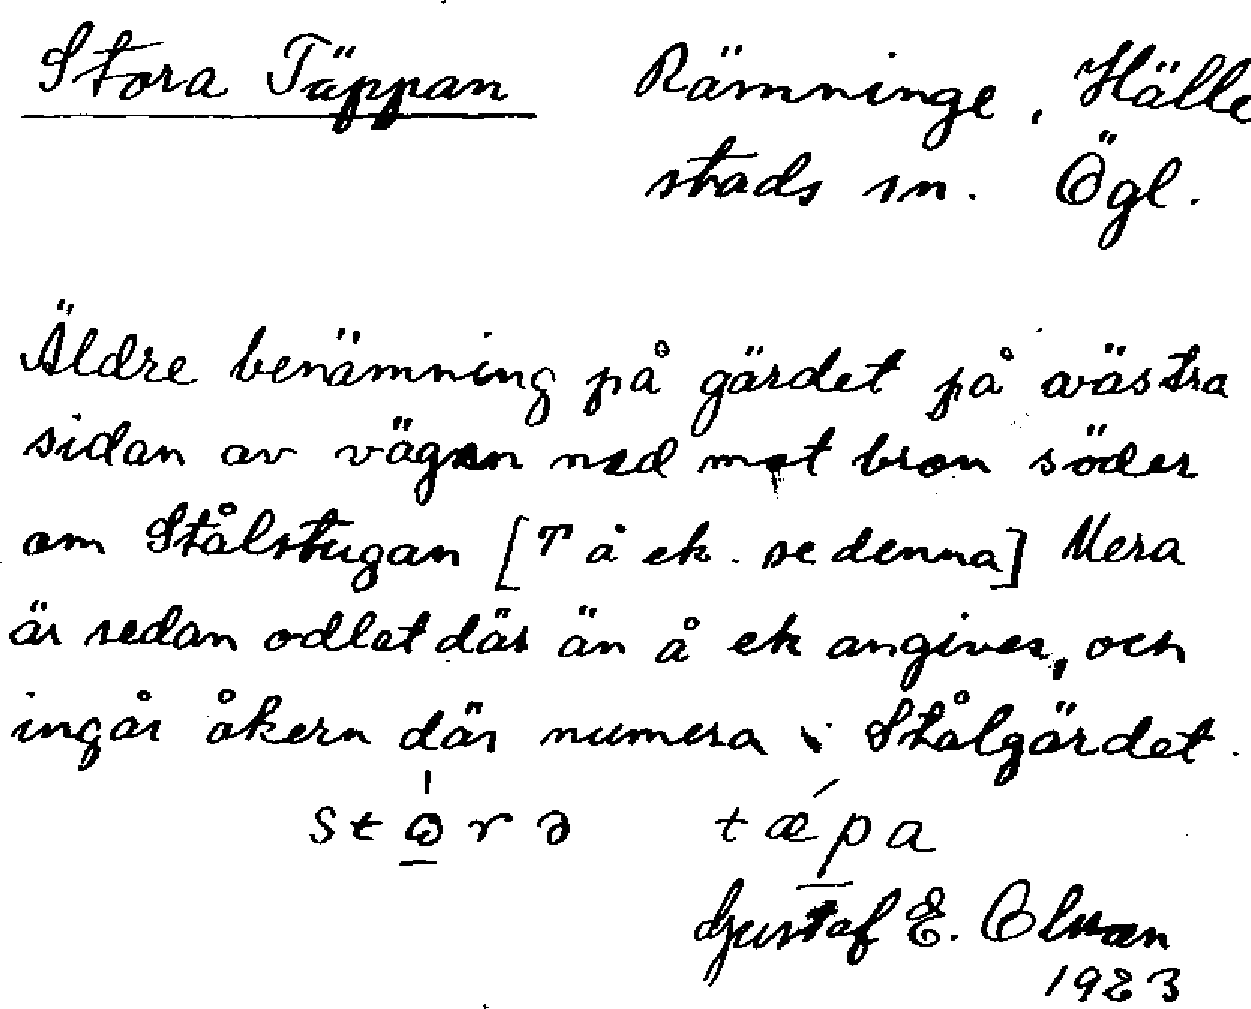 Stora Täppan Rämninge, Hälle
stads sn. Ögl.
Äldre benämning på gärdet på västra
sidan av vägen ned mot bron söder
om Stålstugan [T å ek. se denna] Mera
är sedan odlat där än å ek angives, och
ingår åkern där numera i Stålgärdet.
tǽpa
Gustaf E. Olsson
1923